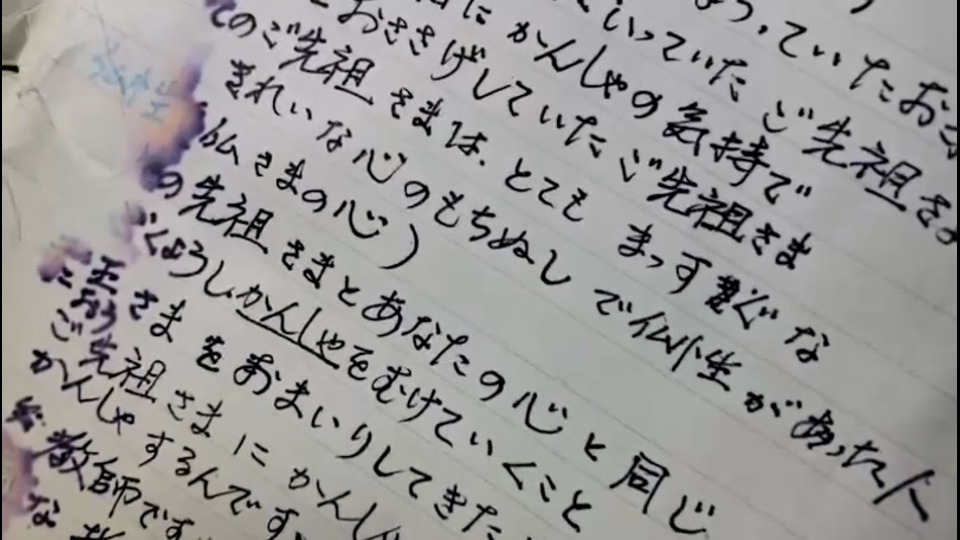 ていたお
といっていた ご先祖さま
にかんしゃの気持で
おささげしていた ご先祖さま
てのご先祖さまは、とても まっすぐな
きれいな心のもちぬしで仏性があった人
仏さまの心)
の先祖さまとあなたの心と同じ
くようしかんしゃをむけていくこと
さまをおまいりしてきた
ご先祖さまにかんし
かんしゃするんです
教師です
な